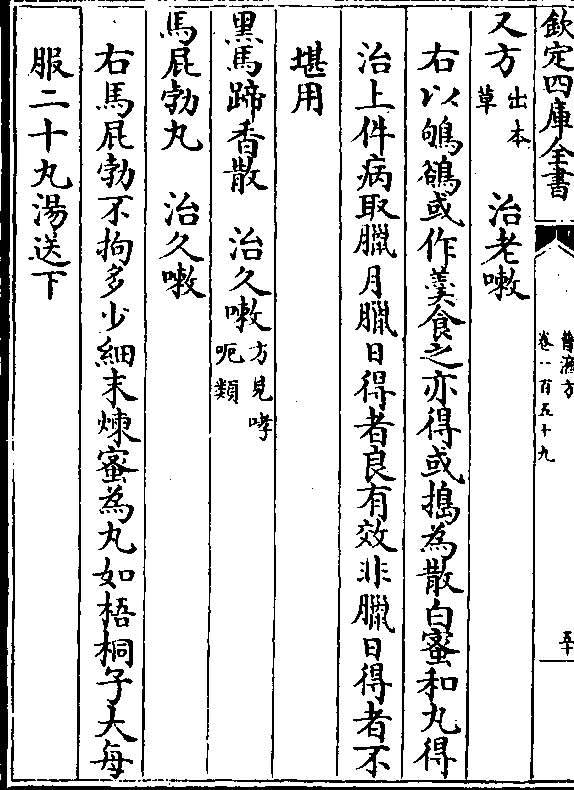 欽定四庫全書
普濟方
卷一百五十九
五十
又方出本草　治老嗽
右以鴝鵒或作羹食之亦得或搗為散白蜜和丸得
治上件病取臘月臘日得者良有效非臘日得者不
堪用
黑馬蹄香散　治久嗽方見哮呃類
馬屁勃丸　治久嗽
右馬屁勃不拘多少細末煉蜜為丸如梧桐子大每
服二十丸湯送下